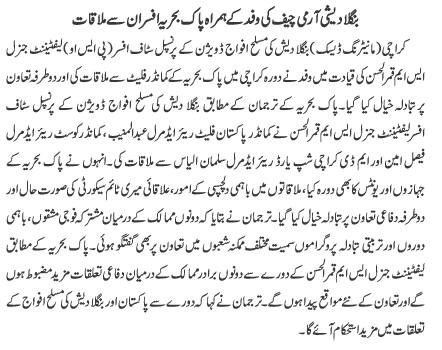 بنگلادیشی آرمی چیف کی وفد کے ہمراہ پاک بحریہ افسران سے ملاقات
کراچی (مانیٹرنگ ڈیسک) بنگلا دیش کی مسلح افواج ڈویژن کے پرنسپل سٹاف افسر (پی ایس او) لیفٹیننٹ جنرل
ایس ایم قمر الحسن کی قیادت میں وفد نے دورہ کراچی میں پاک بحریہ کے کمانڈر فلیٹ سے ملاقات کی اور دوطرفہ تعاون
پر تبادلہ خیال کیا گیا۔ پاک بحریہ کے ترجمان کے مطابق بنگلا دیش کی مسلح افواج ڈویژن کے پرنسپل سٹاف
افسر لیفٹیننٹ جنرل ایس ایم قمر الحسن نے کمانڈر پاکستان فلیٹ ریئر ایڈمرل عبدالمنیب، کمانڈر کوسٹ ریئر ایڈمرل
فیصل امین اور ایم ڈی کراچی شپ یارڈ ریئر ایڈمرل سلمان الیاس سے ملاقات کی۔ انہوں نے پاک بحریہ کے
جہازوں اور یونٹس کا بھی دورہ کیا، ملاقاتوں میں باہمی دلچسپی کے امور، علاقائی میری ٹائم سیکورٹی کی صورت حال اور
دوطرفہ دفاعی تعاون پر تبادلہ خیال کیا گیا۔ ترجمان نے بتایا کہ دونوں ممالک کے درمیان مشترکہ فوجی مشقوں، باہمی
دوروں اور تربیتی تبادلہ پروگراموں سمیت مختلف ممکنہ شعبوں میں تعاون پر بھی گفتگو ہوئی۔ پاک بحریہ کے مطابق
لیفٹیننٹ جنرل ایس ایم قمر الحسن کے دورے سے دونوں برادر ممالک کے درمیان دفاعی تعلقات مزید مضبوط ہوں
گے اور تعاون کے نئے مواقع پیدا ہوں گے۔ ترجمان نے کہا کہ دورے سے پاکستان اور بنگلا دیش کی مسلح افواج کے
تعلقات میں مزید استحکام آئے گا۔